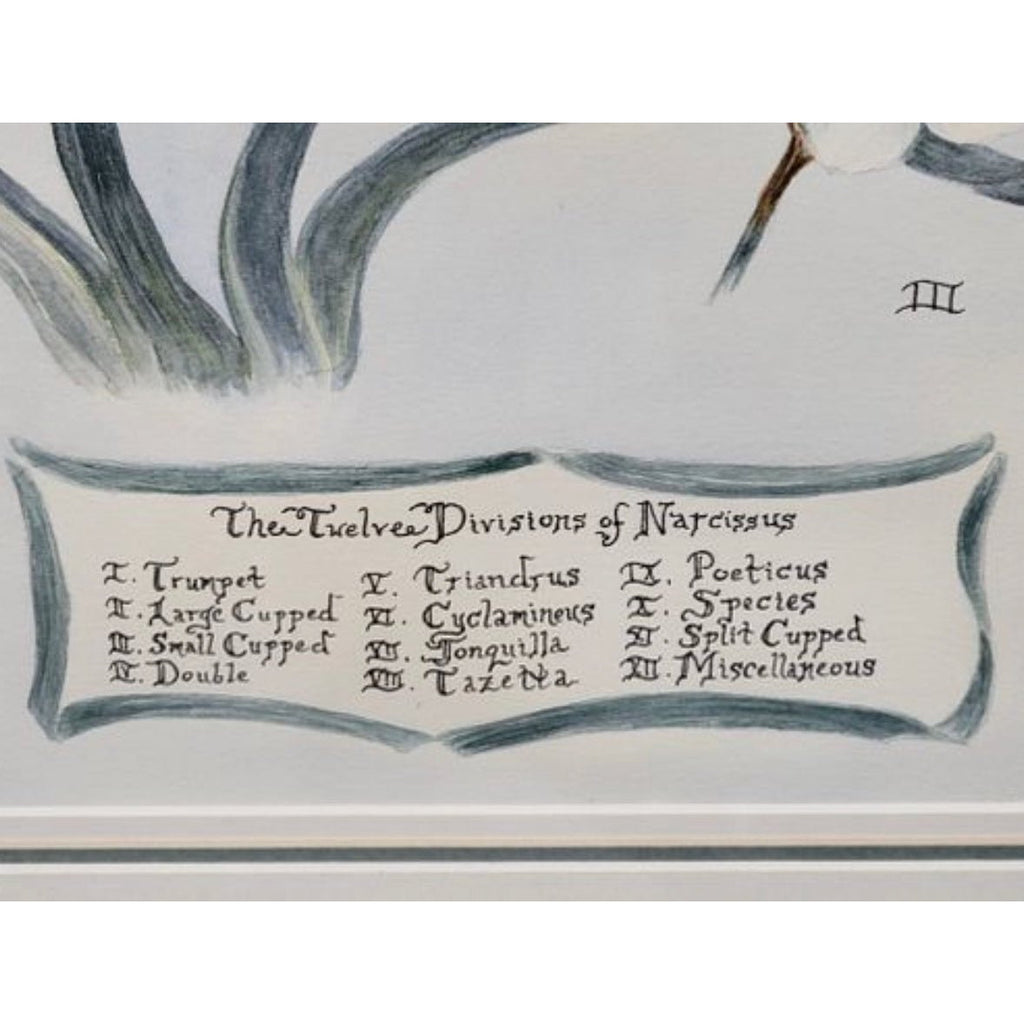 III
The Twelve Divisions of Narcissus
I. Trumpet
II. Large Cupped
III. Small Cupped
IV. Double
V. Triandrus
VI. Cyclamineus
VII. Jonquilla
VIII. Tazetta
IX. Poeticus
X. Species
XI. Split Cupped
XII. Miscellaneous